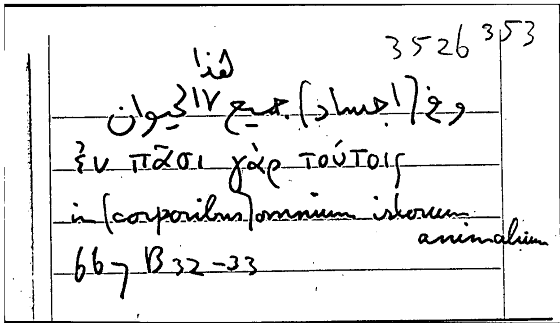 3526 353
هذا
وفي (اجساد) جميع الحيوان
ἐν πᾶσι γὰρ τούτοις
in (corporibus) omnium istorum
animalium
667 B 32-33